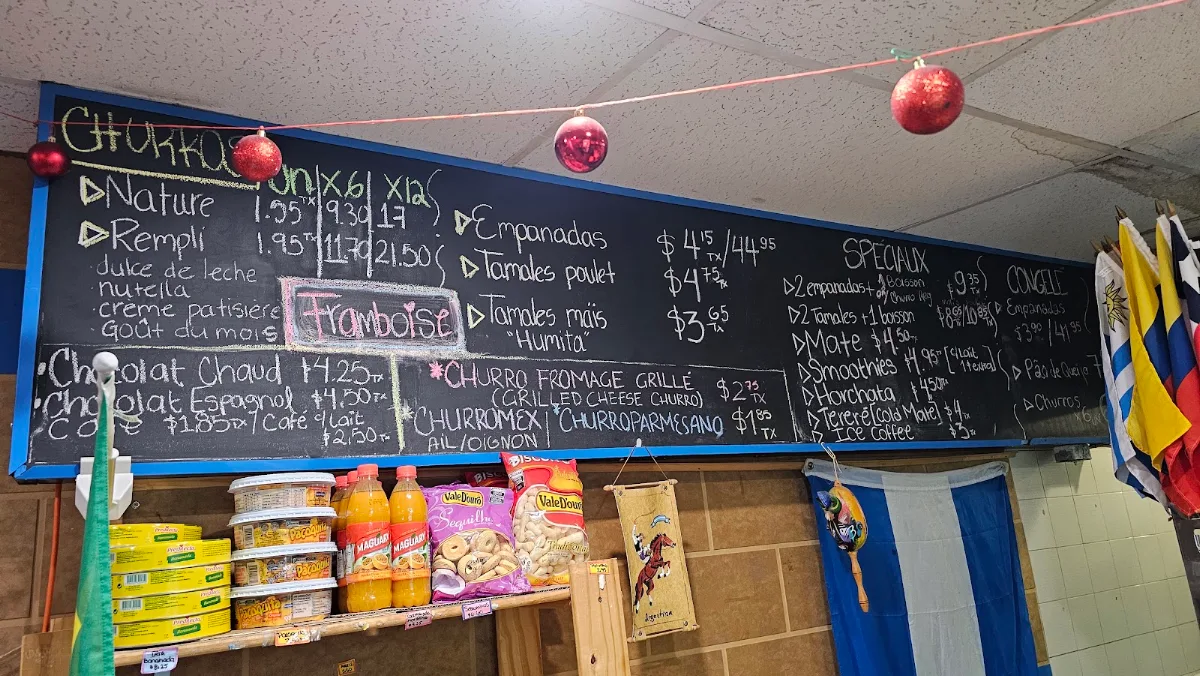 CHURROS Un X.6 X12
Nature 1.55TX 9.30 17
Rempli 1.95TX 11.70 21.50
dulce de leche
nutella
crème patisière
Goût du mois
Framboise
Empanadas $4.15 TX / 44.95
Tamales poulet $4.75 TX
Tamales maïs $3.65 TX
"Humita"
Chocolat Chaud $4.25 TX
Chocolat Espagnol $4,50 TX
Café $1.85TX / Café g/lait
$2,50TX
CHURRO FROMAGE GRILLÉ $2.75 TX
(GRILLED CHEESE CHURRO)
CHURROMEX CHURROPARMESANO $1.85 TX
AIL/OIGNON
SPÉCIAUX
2 empanadas + Boisson $9.35
2 Tamales + 1 boisson
Mate $4.50TX
Smoothies $4.95TX [Lait
Horchata $4.50TX
Tereré (Cold Mate) $4TX
Ice Coffee $3TX
CONGELÉ
Empanadas
$3.90 / 41.95
Pão de Queijo
Churros
MAGUARY
MAGUARY
VALE D'OURO
Sequilho
BISCOITO
VALE D'OURO
Tradicional
Paçoquita
Paçoquita
Argentina
bananada